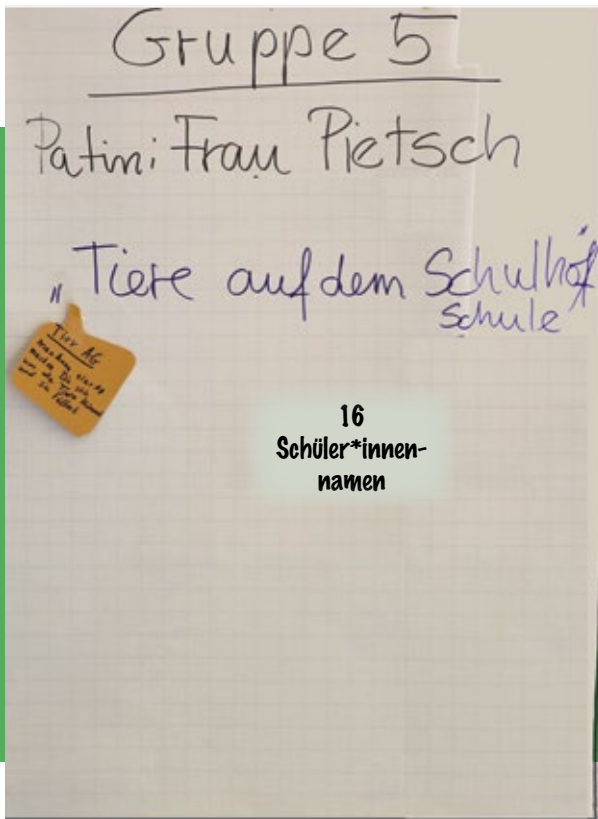 Gruppe 5
Patin: Frau Pietsch
„Tiere auf dem Schulhof"
Schule
Tier AG
16
Schüler*innen-
namen